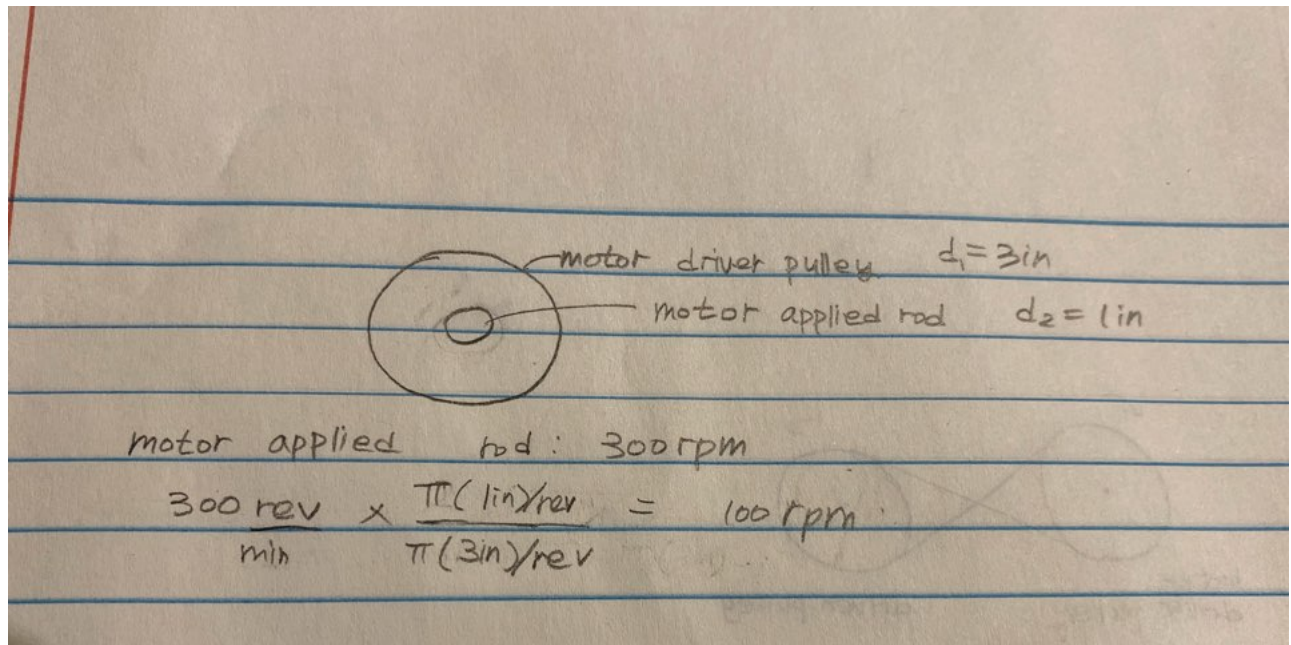 motor driver pulley d₁=3in
motor applied rod d₂=1in
motor applied rod: 300rpm
300 rev/min × π(1in)/rev / π(3in)/rev = 100 rpm